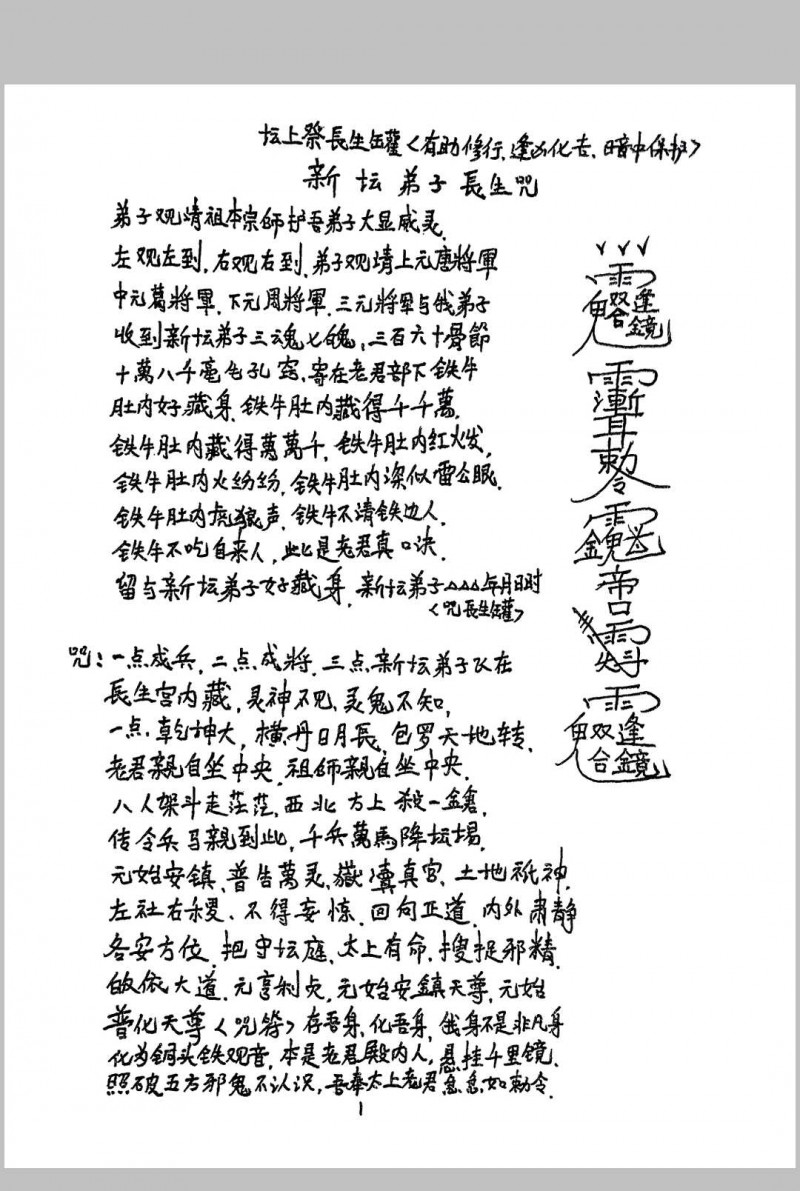 坛上祭長生缶藿<有助修行、逢凶化吉、暗中保护>
新坛弟子長生咒
弟子观请祖本宗师护吾弟子大显威灵.
左观左到,右观右到,弟子观請上元唐將軍
中元葛將軍.下元周將軍.三元將軍与我弟子
收到新坛弟子三魂七魄,三百六十骨節
十萬八千毫毛孔窍,寄在老君部下铁牛
肚内好藏身.铁牛肚内藏得千千萬.
铁牛肚内藏得萬萬千,铁牛肚内红火发,
铁牛肚内火纷纷,铁牛肚内深似雷公眼.
铁牛肚内虎狼声,铁牛不清铁边人.
铁牛不吃自来人,此是老君真口决.
留与新坛弟子好藏身,新坛弟子△△△年月日时
<咒長生缶藿>
咒:一点成兵,二点成將.三点新坛弟子以在
長生宫内藏,灵神不见,灵鬼不知,
一点乾坤大,横丹日月長,包罗天地转.
老君親自坐中央.祖师親自坐中央.
八人架斗走茫茫,西北方上殺一鎗.
传令兵马親到此,千兵萬馬降坛場.
元始安镇.普告萬灵.嶽瀆真官、土地祇神.
左社右稷、不得妄惊.回向正道.内外肃静
各安方位.把守坛庭.太上有命.搜捉邪精.
皈依大道.元亨利贞,元始安鎮天尊,元始
普化天尊<咒符>存吾身,化吾身,俄身不是非凡身
化为铜头铁观音,本是老君殿内人,悬挂千里镜.
照破五方邪鬼不认识,吾奉太上老君急急如勅令.
1
雙合逢鏡
勅令
帝
雙合逢鏡